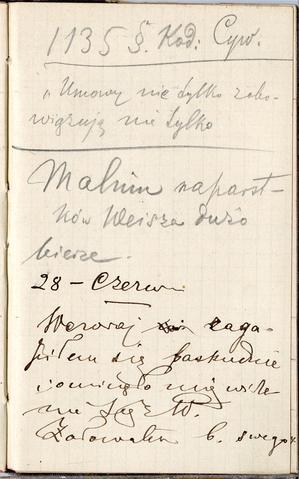 1135 §. Kod: Cyw.
„Umowy nie tylko zobo-
wiązują nie tylko
Malwin naparst-
ków Weisza dużo
bierze.
28 – Czerwca
Wczoraj zaga-
piłem się paskudnie
i ominęło mnie
b. swego